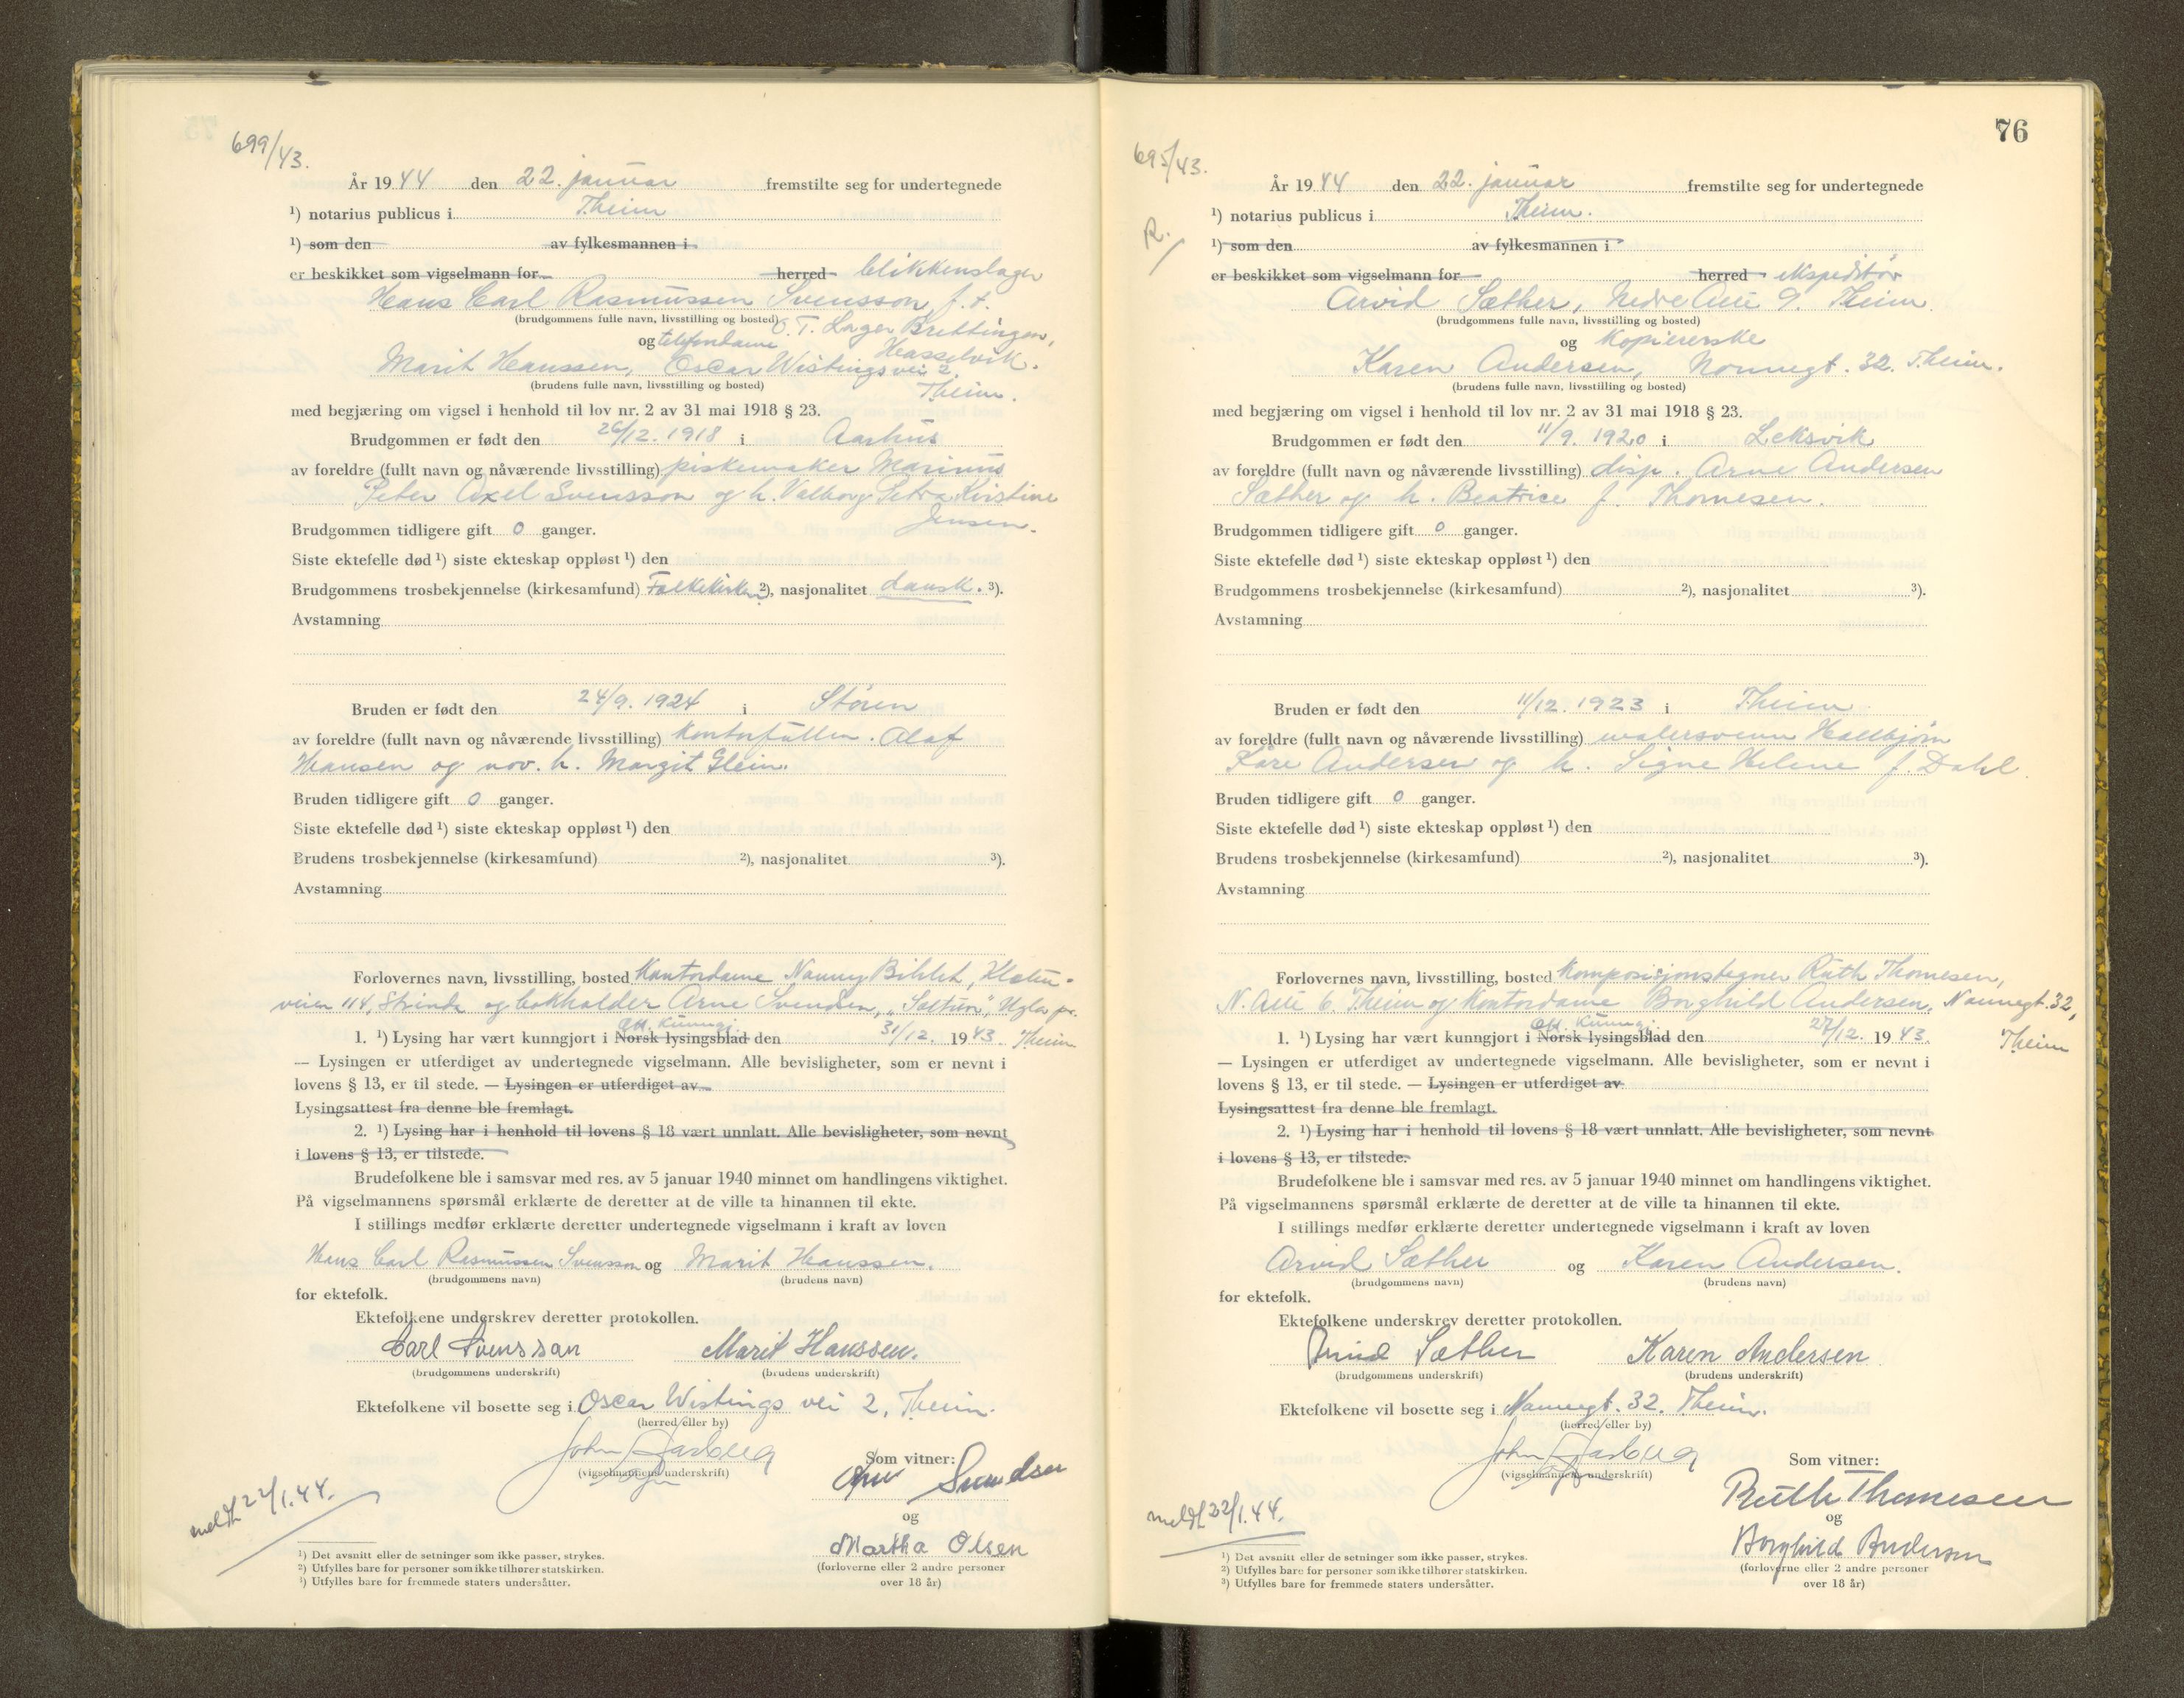 699/43.
År 1944 den 22. januar fremstilte seg for undertegnede
¹) notarius publicus i Theim
¹) som den av fylkesmannen i
er beskikket som vigselmann for herred blikkenslager
Hans Carl Rasmussen Svensson f. t.
(brudgommens fulle navn, livsstilling og bosted) O.T. Lager Brettingen,
og telefondame Hasselvik.
Marit Hanssen, Oscar Wistings vei 2
(brudens fulle navn, livsstilling og bosted) Theim.
med begjæring om vigsel i henhold til lov nr. 2 av 31 mai 1918 § 23.
Brudgommen er født den 26/12. 1918 i Aarhus
av foreldre (fullt navn og nåværende livsstilling) piskemaker Marinus
Peter Axel Svensson og h. Valborg Petra Kirstine
Jensen.
Brudgommen tidligere gift 0 ganger.
Siste ektefelle død ¹) siste ekteskap oppløst ¹) den
Brudgommens trosbekjennelse (kirkesamfund) Folkekirken ²), nasjonalitet dansk. ³).
Avstamning
Bruden er født den 24/9. 1924 i Støren
av foreldre (fullt navn og nåværende livsstilling) kontorfullm. Olaf
Hansen og nov. h. Margit Glein.
Bruden tidligere gift 0 ganger.
Siste ektefelle død ¹) siste ekteskap oppløst ¹) den
Brudens trosbekjennelse (kirkesamfund) ²), nasjonalitet ³).
Avstamning
Forlovernes navn, livsstilling, bosted Kontordame Nanny
veien 114, Strinda og bokholder Arne Svendsen, Ugla pr.
1. ¹) Lysing har vært kunngjort i Norsk lysingsblad Off. kunngj. den 31/12. 1943. Theim
— Lysingen er utferdiget av undertegnede vigselmann. Alle bevisligheter, som er nevnt i
lovens § 13, er til stede. — Lysingen er utferdiget av
Lysingsattest fra denne ble fremlagt.
2. ¹) Lysing har i henhold til lovens § 18 vært unnlatt. Alle bevisligheter, som nevnt
i lovens § 13, er tilstede.
Brudefolkene ble i samsvar med res. av 5 januar 1940 minnet om handlingens viktighet.
På vigselmannens spørsmål erklærte de deretter at de ville ta hinannen til ekte.
I stillings medfør erklærte deretter undertegnede vigselmann i kraft av loven
Hans Carl Rasmussen Svensson og Marit Hanssen.
(brudgommens navn) (brudens navn)
for ektefolk.
Ektefolkene underskrev deretter protokollen.
Carl Svensson Marit Hanssen.
(brudgommens underskrift) (brudens underskrift)
Ektefolkene vil bosette seg i Oscar Wistings vei 2, Theim.
(herred eller by)
John
(vigselmannens underskrift) Som vitner:
Arne Svendsen
meldt 22/1.44. og
Martha Olsen
(forloverne eller 2 andre personer
over 18 år)
¹) Det avsnitt eller de setninger som ikke passer, strykes.
²) Utfylles bare for personer som ikke tilhører statskirken.
³) Utfylles bare for fremmede staters undersåtter.
76
695/43.
R.
År 1944 den 22. januar fremstilte seg for undertegnede
¹) notarius publicus i Theim.
¹) som den av fylkesmannen i
er beskikket som vigselmann for herred ekspeditør
Arvid Sæther, Nedre Alle 9. Theim
(brudgommens fulle navn, livsstilling og bosted)
og kopiererske
Karen Andersen, Nonnegt. 32. Theim.
(brudens fulle navn, livsstilling og bosted)
med begjæring om vigsel i henhold til lov nr. 2 av 31 mai 1918 § 23.
Brudgommen er født den 11/9. 1920 i Leksvik
av foreldre (fullt navn og nåværende livsstilling) disp. Arne Andersen
Sæther og h. Beatrice f. Thomesen.
Brudgommen tidligere gift 0 ganger.
Siste ektefelle død ¹) siste ekteskap oppløst ¹) den
Brudgommens trosbekjennelse (kirkesamfund) ²), nasjonalitet ³).
Avstamning
Bruden er født den 11/12. 1923 i Theim
av foreldre (fullt navn og nåværende livsstilling) malersvenn Hallbjørn
Kåre Andersen og h. Signe Helene f. Dahl
Bruden tidligere gift 0 ganger.
Siste ektefelle død ¹) siste ekteskap oppløst ¹) den
Brudens trosbekjennelse (kirkesamfund) ²), nasjonalitet ³).
Avstamning
Forlovernes navn, livsstilling, bosted Komposisjonstegner Ruth Thomesen,
N. Alle 6. Theim og kontordame Borghild Andersen, Nonnegt. 32,
1. ¹) Lysing har vært kunngjort i Norsk lysingsblad Off. kunngj. den 27/12. 1943. Theim
— Lysingen er utferdiget av undertegnede vigselmann. Alle bevisligheter, som er nevnt i
lovens § 13, er til stede. — Lysingen er utferdiget av
Lysingsattest fra denne ble fremlagt.
2. ¹) Lysing har i henhold til lovens § 18 vært unnlatt. Alle bevisligheter, som nevnt
i lovens § 13, er tilstede.
Brudefolkene ble i samsvar med res. av 5 januar 1940 minnet om handlingens viktighet.
På vigselmannens spørsmål erklærte de deretter at de ville ta hinannen til ekte.
I stillings medfør erklærte deretter undertegnede vigselmann i kraft av loven
Arvid Sæther og Karen Andersen.
(brudgommens navn) (brudens navn)
for ektefolk.
Ektefolkene underskrev deretter protokollen.
Arvid Sæther Karen Andersen
(brudgommens underskrift) (brudens underskrift)
Ektefolkene vil bosette seg i Nonnegt. 32. Theim.
(herred eller by)
John
(vigselmannens underskrift) Som vitner:
Ruth Thomesen
meldt 22/1.44. og
Borghild Andersen
(forloverne eller 2 andre personer
over 18 år)
¹) Det avsnitt eller de setninger som ikke passer, strykes.
²) Utfylles bare for personer som ikke tilhører statskirken.
³) Utfylles bare for fremmede staters undersåtter.